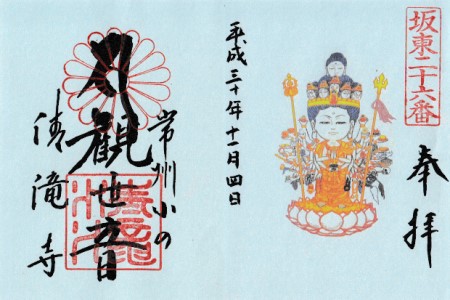 坂東二十六番
奉拝
平成三十年十一月四日
常州小の
観世音
清滝寺